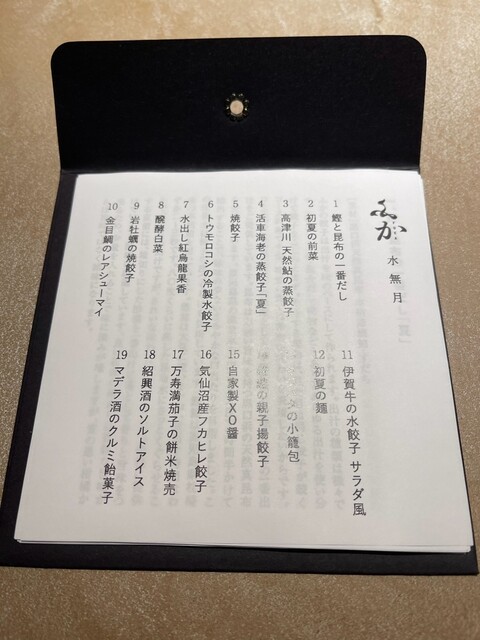 ふか
水無月
1 鰹と昆布の一番だし
2 初夏の前菜
3 高津川 天然鮎の蒸餃子
4 活車海老の蒸餃子「夏」
5 焼餃子
6 トウモロコシの冷製水餃子
7 水出し紅烏龍果香
8 醗酵白菜
9 岩牡蠣の焼餃子
10 金目鯛のレアシューマイ
11 伊賀牛の水餃子 サラダ風
12 初夏の麺
の小籠包
の親子揚餃子
15 自家製XO醤
16 気仙沼産フカヒレ餃子
17 万寿満茄子の餅米焼売
18 紹興酒のソルトアイス
19 マデラ酒のクルミ飴菓子